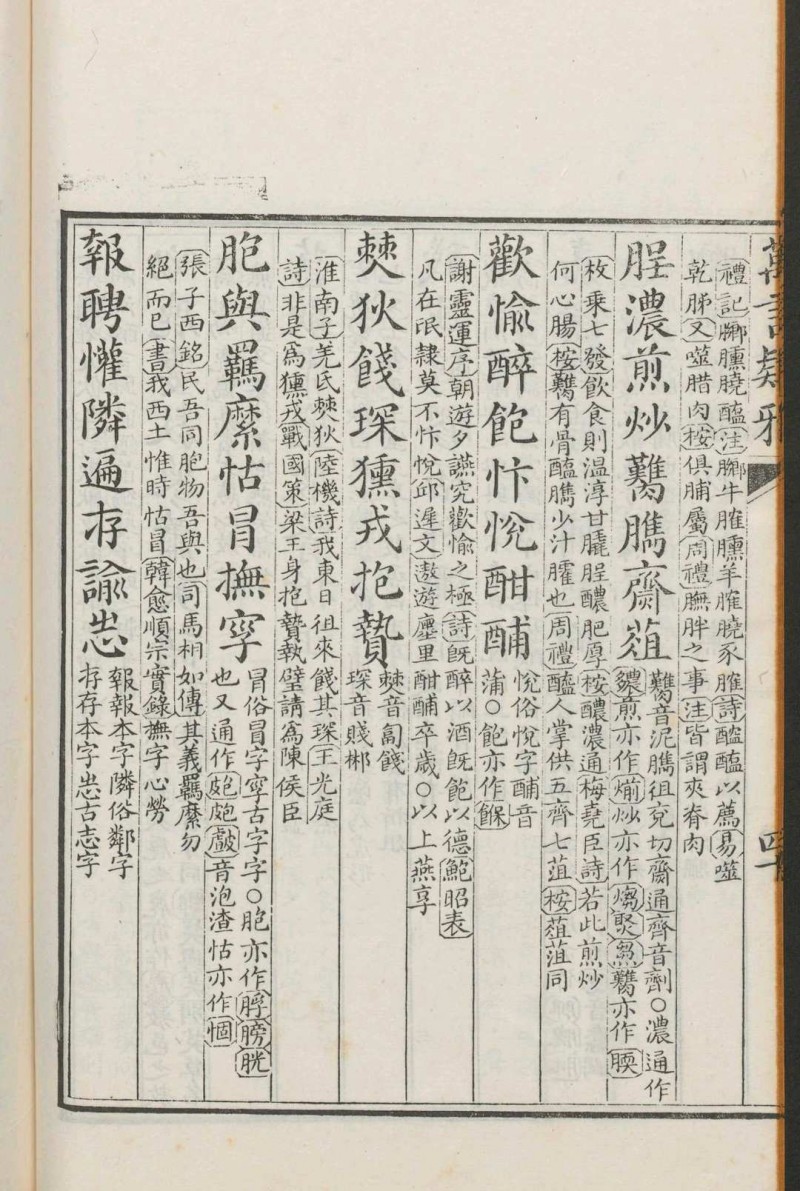 禮記膷臐膮醢注膷牛臛臐羊臛膮豕臛詩醓醢以薦易噬
乾胏又噬腊肉桉俱脯屬周禮膴胖之事注皆謂夾脊肉
脭濃煎炒臡臇齋葅
臡音泥臇徂兖切齋通齊音劑○濃通作
煎亦作煎炒亦作臡亦作腝
枚乘七發飲食則温淳甘膬脭醲肥厚桉醲濃通梅堯臣詩若此煎炒
何心腸桉臡有骨醢臇少汁臛也周禮醢人掌供五齊七菹桉葅菹同
歡愉醉飽忭悅酣酺
悅俗悅字酺音
蒲○飽亦作
謝靈運序朝遊夕讌究歡愉之極詩既醉以酒既飽以德鮑昭表
凡在氓隸莫不忭悅邱遲文遨遊廛里酣酺卒歲○以上燕享
僰狄餞琛獯戎抱贄
僰音匐餞
琛音賤郴
淮南子羌氐僰狄陸機詩我東日徂來餞其琛王光庭
詩非是為獯戎戰國策梁王身抱贄執璧請為陳侯臣
胞與羈縻怙冒撫寧
冒俗冒字寧古字字○胞亦作脬膀胱
也又通作皰皰音泡渣怙亦作
張子西銘民吾同胞物吾與也司馬相如傳其義羈縻勿
絕而已書我西土惟時怙冒韓愈順宗實錄撫字心勞
報聘懽隣遍存諭志
報報本字隣俗鄰字
存存本字志古志字